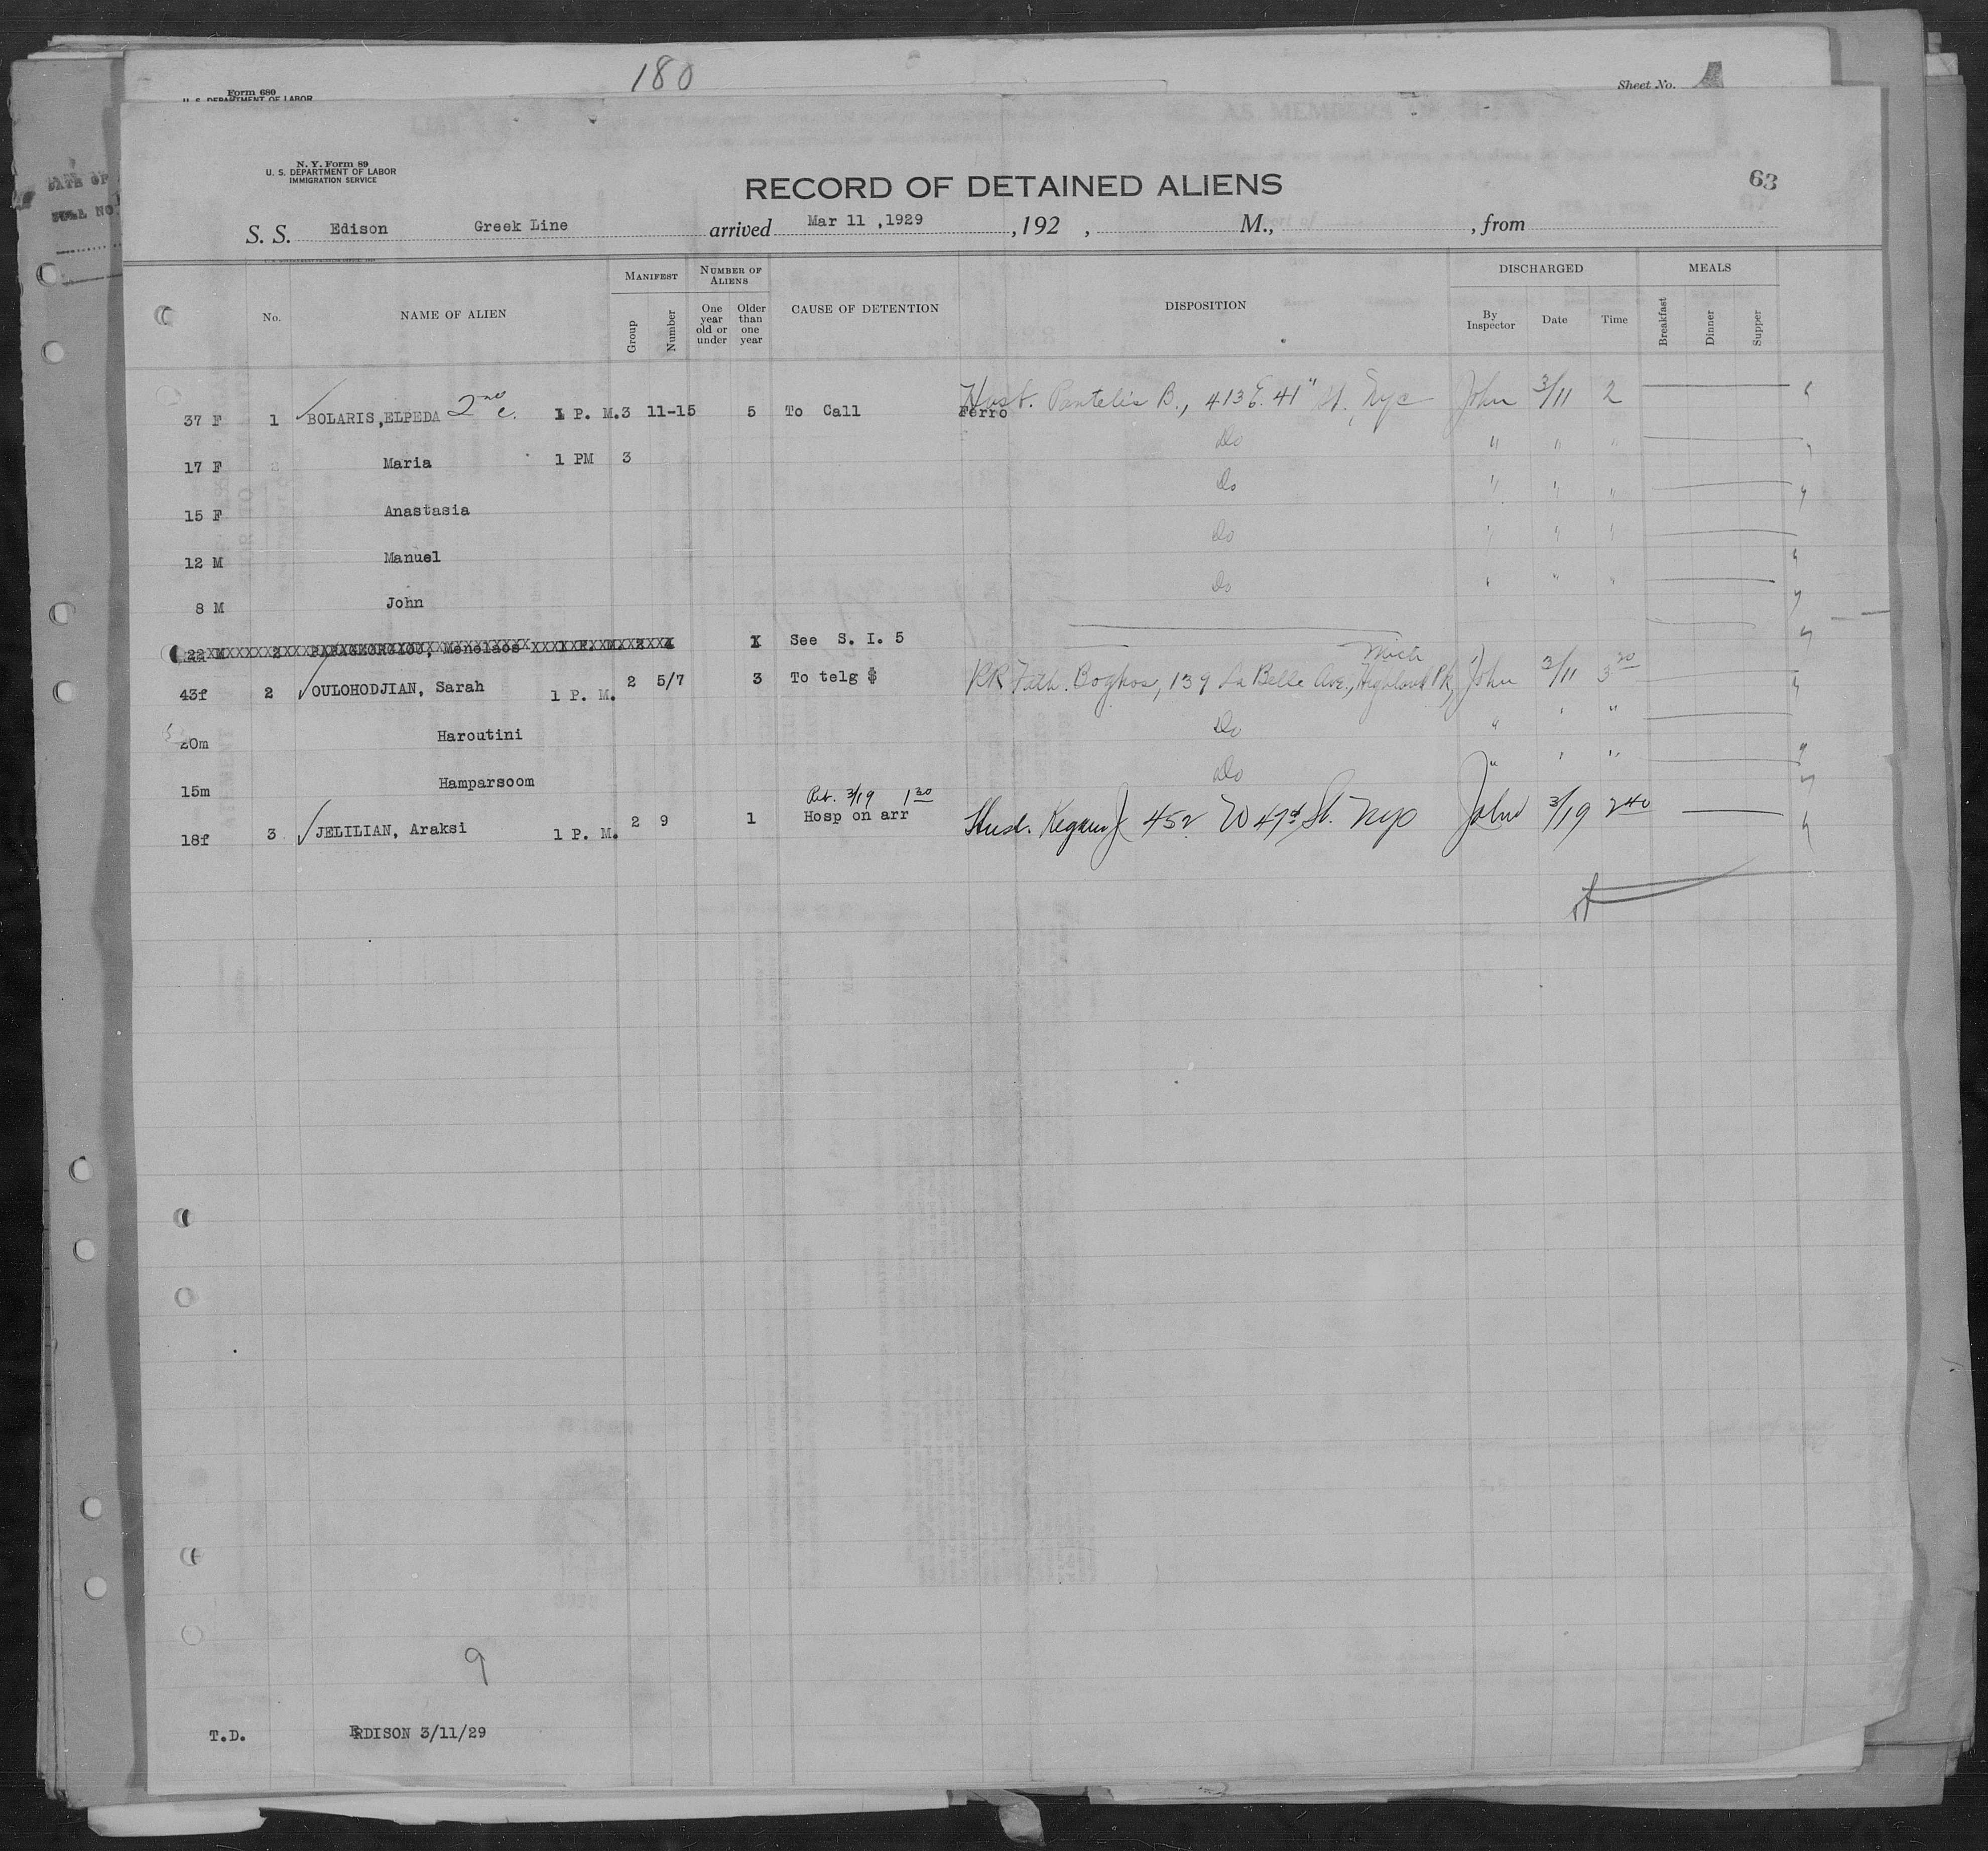 180
Form 680
U. S. DEPARTMENT OF LABOR
Sheet No. 1
DATE OF
N. Y. Form 89
U. S. DEPARTMENT OF LABOR
IMMIGRATION SERVICE
RECORD OF DETAINED ALIENS
63
S. S. Edison Greek Line arrived Mar 11 ,1929 , 192 , M., , from
No. NAME OF ALIEN MANIFEST Group Number NUMBER OF ALIENS One year old or under Older than one year CAUSE OF DETENTION DISPOSITION DISCHARGED By Inspector Date Time MEALS Breakfast Dinner Supper
37 F 1 BOLARIS,ELPEDA 2nd c. 1 P. M. 3 11-15 5 To Call Husb. Pantelis B., 413 E. 41" St., Nyc John 3/11 2
Ferro
17 F Maria 1 PM 3 Do " " "
15 F Anastasia Do " " "
12 M Manuel Do " " "
8 M John Do " " "
22 M 2 PAPAGEORGIOU, Menelaos 1 P. M. 2 4 1 See S. I. 5
43f 2 OULOHODJIAN, Sarah 1 P. M. 2 5/7 3 To telg $ RR Fath. Boghos, 139 La Belle Ave., Highland Pk, Mich John 3/11 3 20
20m Haroutini Do " " "
15m Hamparsoom Do " " "
18f 3 JELILIAN, Araksi 1 P. M. 2 9 1 Ret. 3/19 1 30 Hosp on arr Husb. J 452 W 47 St. Nyc John 3/19 2 40
9
T.D. EDISON 3/11/29